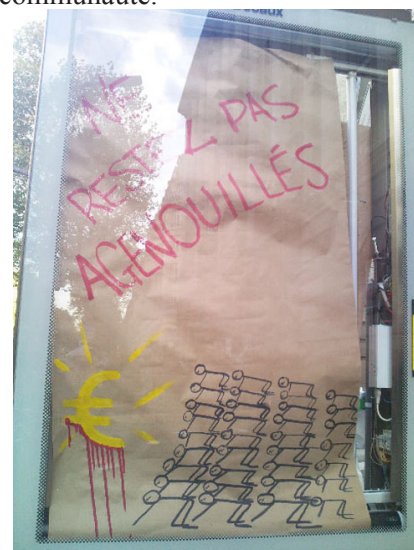 communauté.
NE
RESTEZ PAS
AGENOUILLÉS
€